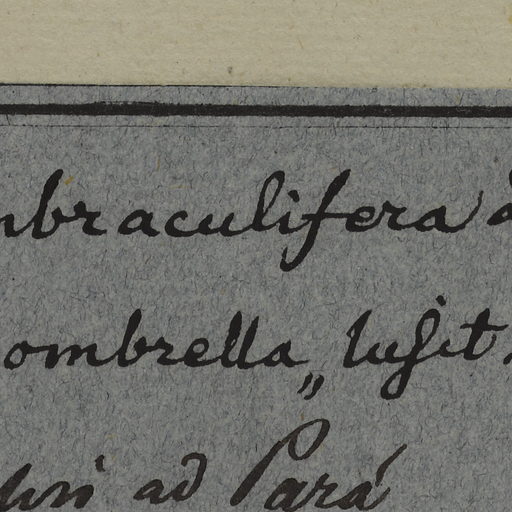 mbraculifera
ombrella„ lusit.
ad Pará